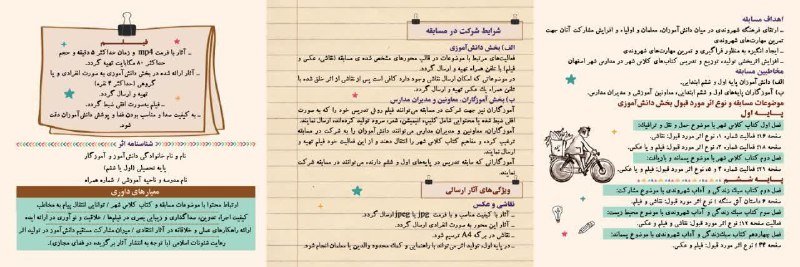 اهداف مسابقه
ـ ارتقای فرهنگ شهروندی در میان دانش‌آموزان، معلمان و اولیاء و افزایش مشارکت آنان جهت
تمرین مهارت‌های شهروندی
ـ ایجاد انگیزه به منظور فراگیری و تمرین مهارت‌های شهروندی
ـ افزایش اثربخشی تولید، توزیع و تدریس کتاب‌های کلاس شهر در مدارس شهر اصفهان
مخاطبین مسابقه
الف) دانش‌آموزان پایه‌های اول و ششم ابتدایی،
ب) آموزگاران پایه‌های اول و ششم ابتدایی، معاونین آموزشی و مدیران مدارس.
موضوعات مسابقه و نوع اثر مورد قبول بخش دانش‌آموزی
پــایــه اول
فصل اول کتاب کلاس شهر با موضوع حمل و نقل و ترافیک:
صفحه ۱۶؛ فعالیت شماره ۱، نوع اثر مورد قبول: نقاشی.
صفحه ۱۸؛ فعالیت شماره ۲، نوع اثر مورد قبول: فیلم و یا عکس.
فصل دوم کتاب کلاس شهر با موضوع پسماند و بازیافت:
صفحه ۳۱؛ فعالیت شماره ۴ و ۵، نوع اثر مورد قبول: فیلم و یا عکس.
پــایــه ششــم
فصل دوم کتاب سبک زندگی و آداب شهروندی با موضوع مشارکت:
صفحه ۶ داستان آش سنگ؛ نوع اثر مورد قبول: فیلم.
فصل سوم کتاب سبک زندگی و آداب شهروندی با موضوع محیط زیست:
فعالیت صفحه ۱۷؛ نوع اثر مورد قبول: فیلم و یا نقاشی.
فصل چهاردهم کتاب سبک زندگی و آداب شهروندی با موضوع پسماند:
صفحه ۴۴؛ نوع اثر مورد قبول: فیلم و عکس.
شرایط شرکت در مسابقه
الف) بخش دانش‌آموزی
فعالیت‌های مرتبط با موضوعات در قالب محورهای مشخص شده‌ی مسابقه (نقاشی، عکس و
فیلم) با تلفن همراه تهیه و ارسال گردد.
در موضوعاتی که امکان ارسال نقاشی وجود دارد کافی است پس از نقاشی از اثر خلق شده با
تلفن همراه یک عکس تهیه و ارسال گردد.
ب) بخش آموزگاران، معاونین و مدیران مدارس
آموزگاران نیز جهت شرکت در مسابقه می‌توانند فیلم روش تدریس خود را که به صورت
افقی ضبط شده با محتوایی شامل کلیپ، انیمیشن، شعر، سرود تولید کرده‌اند، ارسال نمایند.
آموزگاران، معاونین و مدیران مدارس می‌توانند دانش‌آموزان را به شرکت در مسابقه
ترغیب کرده و مفاهیم کتاب کلاس شهر را انتقال دهند و از این فعالیت خود فیلم تهیه و
ارسال نمایند.
آموزگارانی که سابقه تدریس در پایه‌های اول و ششم دارند، می‌توانند در مسابقه شرکت
نمایند.
ویژگی‌های آثار ارسالی
نقاشی و عکس
ـ آثار با کیفیت مناسب و با فرمت jpg یا jpeg ارسال گردد.
ـ آثار این محور به صورت انفرادی ارسال گردد.
ـ نقاشی در برگه A4 ترسیم شود.
ـ در پایه اول، تولید اثر می‌تواند با راهنمایی و کمک محدود والدین یا معلمان انجام شود.
فیــلــم
ـ آثار با فرمت mp4 و زمان حداکثر ۵ دقیقه و حجم
حداکثر ۸۰ مگابایت تهیه گردد.
ـ آثار ارائه شده در بخش دانش‌آموزی به صورت انفرادی و یا
گروهی (حداکثر ۴ نفره)
تهیه و ارسال گردد.
ـ فیلم به‌صورت افقی ضبط گردد.
ـ به کیفیت صدا و مناسب بودن فضا و پوشش دانش‌آموزان دقت
شود.
شناسنامه اثر
نام و نام خانوادگی دانش‌آموز و آموزگار
پایه تحصیلی (اول یا ششم)
نام مدرسه و ناحیه آموزشی / شماره همراه
معیارهای داوری
ارتباط محتوا با موضوعات مسابقه و کتاب کلاس شهر / توانایی انتقال پیام به مخاطب
کیفیت اجرا، تدوین، صداگذاری و زیبایی بصری در فیلم‌ها / خلاقیت و نوآوری در ارائه ایده
ارائه راهکارهای عملی و خلاقانه در آثار انتقادی / میزان مشارکت مستقیم دانش‌آموز در تولید اثر
رعایت شئونات اسلامی (با توجه به انتشار آثار برگزیده در فضای مجازی).